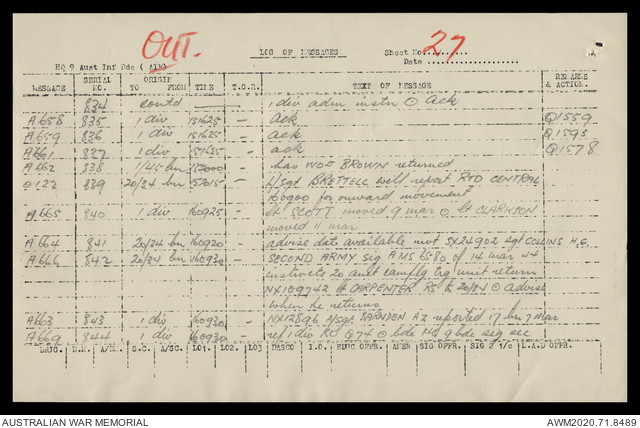 OUT.
LOG OF MESSAGES Sheet No. 27
Date
HQ 9 Aust Inf Bde (AIM)
MESSAGE SERIAL NO. ORIGIN TO FROM TIME T.O.R. TEXT OF MESSAGE REMARKS & ACTION.
834 contd 1 div adm instn ⊙ Ack
A658 835 1 div 151625 - ack Q1559
A659 836 1 div 151625 - ack Q1593
A661 837 1 div 151635 - ack Q1578
A662 838 1/45 bn - has WO2 BROWN returned
O122 839 20/34 bn - A/Sgt BRETTELL will report RTO CENTRAL
160900 for onward movement
A665 840 1 div 160925 - Lt SCOTT moved 9 mar ⊙ Lt CLARKSON
moved 11 mar
A664 841 20/34 bn 160920 - advise date available mvt SX24902 Sgt COLLINS H.G.
A666 842 20/34 bn 160930 - SECOND ARMY sig AMS 6580 of 14 mar 44
instructs 20 aust camplg trg unit return
NX109742 Lt CARPENTER RS to 20/34 ⊙ advise
when he returns
A663 843 1 div 160930 - NX12896 A/Sgt BARNDEN AZ reported 17 bn 7 mar
A669 844 1 div 160930 - ref 1 div RO 874 ⊙ bde HQ 9 bde sig sec
DRUG. B.M. A/BM. S.C. A/SC. LO1. LO2. LO3 BASCO I.O. EDUC OFFR. AMEN SIG OFFR. SIG 2 I/c L.A.D OFFR.
AUSTRALIAN WAR MEMORIAL AWM2020.71.8489